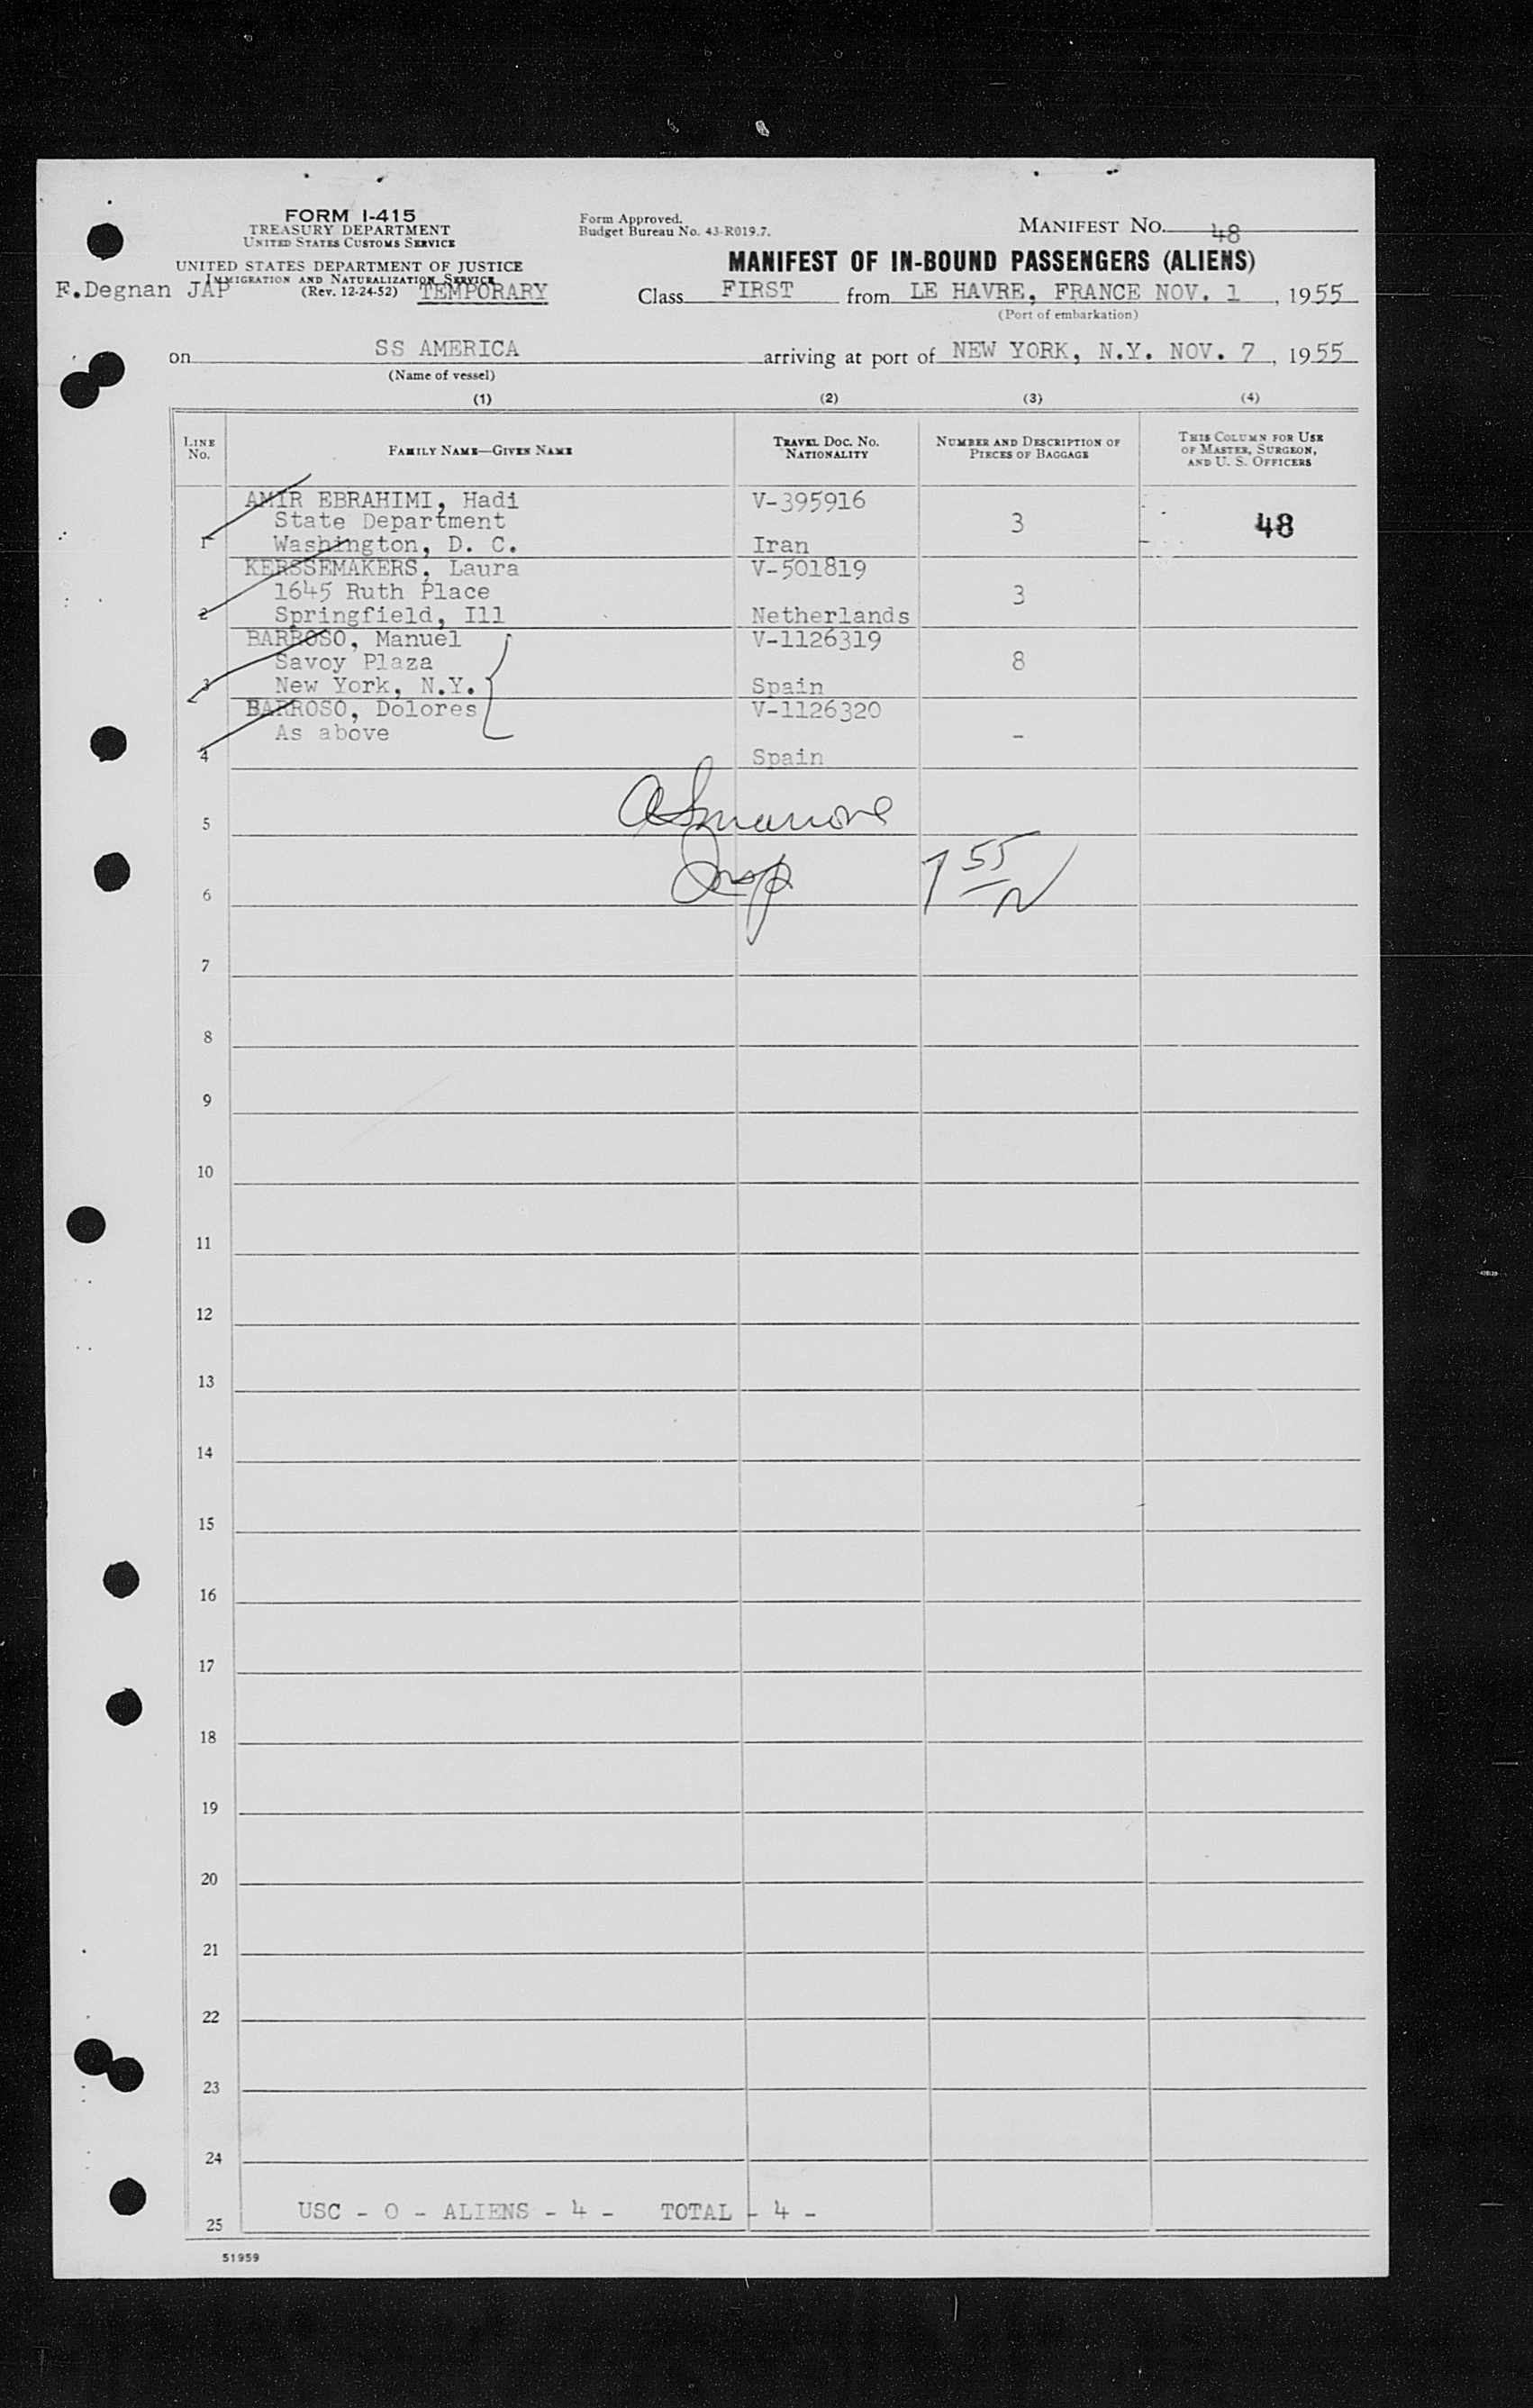 FORM I-415
TREASURY DEPARTMENT
UNITED STATES CUSTOMS SERVICE
UNITED STATES DEPARTMENT OF JUSTICE
IMMIGRATION AND NATURALIZATION SERVICE
(Rev. 12-24-52) TEMPORARY
F.Degnan JAP
Form Approved.
Budget Bureau No. 43-R019.7.
MANIFEST NO. 48
MANIFEST OF IN-BOUND PASSENGERS (ALIENS)
Class FIRST from LE HAVRE, FRANCE NOV. 1, 1955
(Port of embarkation)
on SS AMERICA arriving at port of NEW YORK, N.Y. NOV. 7, 1955
(Name of vessel)
(1) (2) (3) (4)
LINE NO. FAMILY NAME—GIVEN NAME TRAVEL DOC. NO. NATIONALITY NUMBER AND DESCRIPTION OF PIECES OF BAGGAGE THIS COLUMN FOR USE OF MASTER, SURGEON, AND U. S. OFFICERS
AMIR EBRAHIMI, Hadi V-395916
State Department 3 48
1 Washington, D. C. Iran
KERSSEMAKERS, Laura V-501819
1645 Ruth Place 3
2 Springfield, Ill Netherlands
BARROSO, Manuel V-1126319
Savoy Plaza 8
3 New York, N.Y. Spain
BARROSO, Dolores V-1126320
As above -
4 Spain
5
6
7
8
9
10
11
12
13
14
15
16
17
18
19
20
21
22
23
24
USC - 0 - ALIENS - 4 - TOTAL - 4 -
25
51959